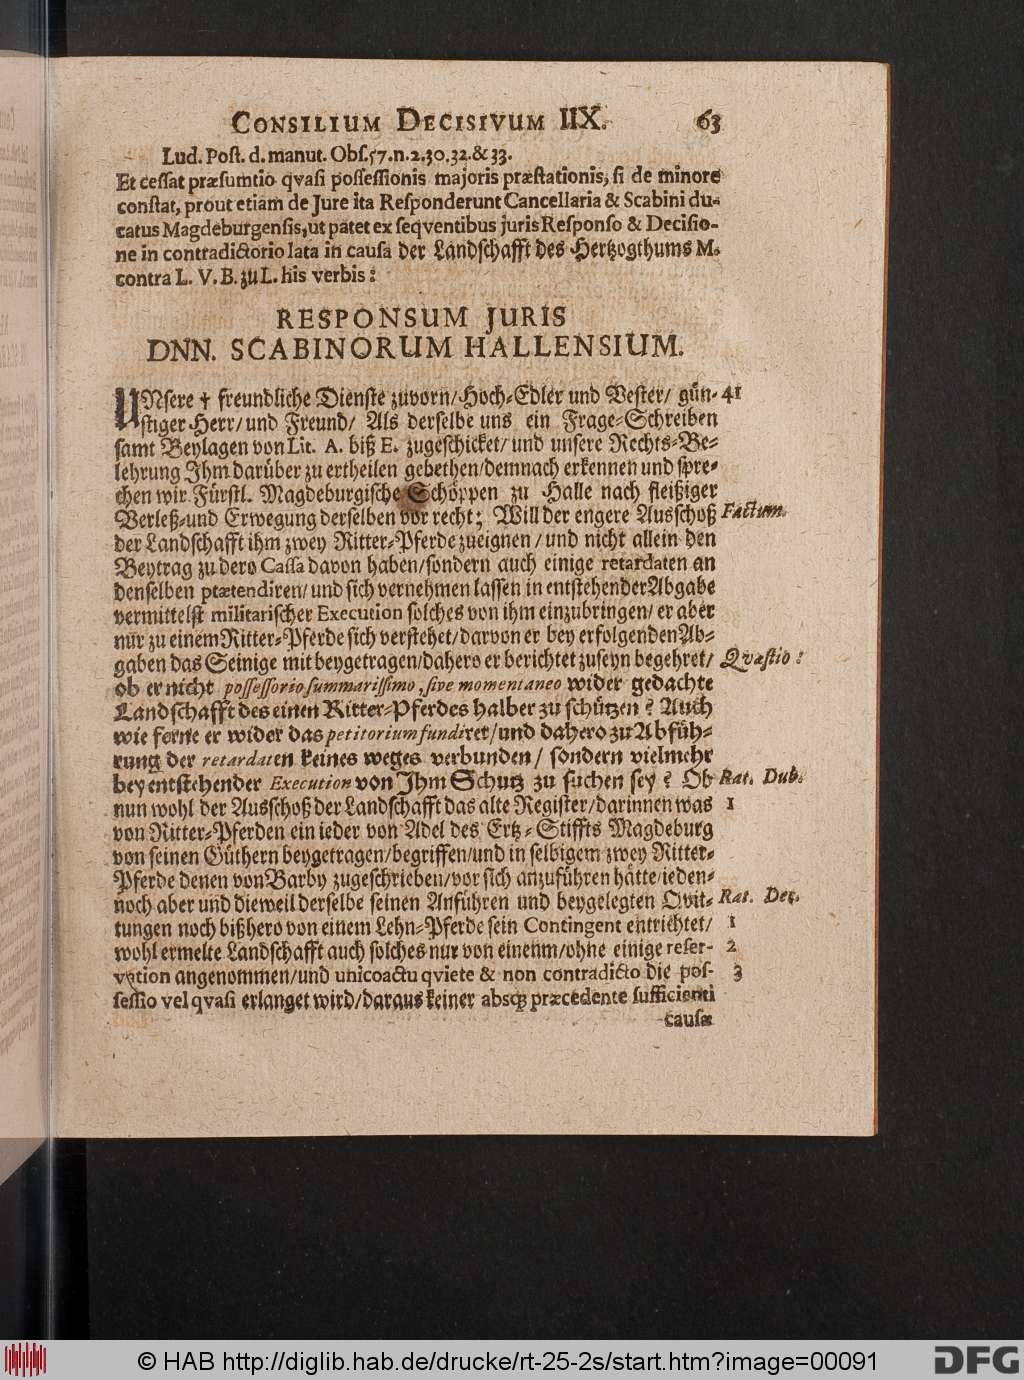 CONSILIUM DECISIVUM IIX. 63
Lud. Post. d. manut. Obſ. 57. n. 2. 30. 32. & 33.
Et ceſſat præſumtio qvaſi poſſeſſionis majoris præſtationis, ſi de minore
conſtat, prout etiam de Jure ita Reſponderunt Cancellaria & Scabini du-
catus Magdeburgenſis, ut patet ex ſeqventibus juris Reſponſo & Deciſio-
ne in contradictorio lata in cauſa der Landſchafft des Hertzogthums M.
contra L. V. B. zu L. his verbis:
RESPONSUM JURIS
DNN. SCABINORUM HALLENSIUM.
UNſere † freundliche Dienſte zuvorn/ Hoch-Edler und Veſter/ gün- 41
ſtiger Herr/ und Freund/ Als derſelbe uns ein Frage-Schreiben
ſamt Beylagen von Lit. A. biß E. zugeſchicket/ und unſere Rechts-Be-
lehrung Ihm darüber zu ertheilen gebethen/ demnach erkennen und ſpre-
chen wir Fürſtl. Magdeburgiſche Schöppen zu Halle nach fleißiger
Verleß- und Erwegung derſelben vor recht; Will der engere Ausſchoß Factum.
der Landſchafft ihm zwey Ritter-Pferde zueignen/ und nicht allein den
Beytrag zu dero Caſſa davon haben/ ſondern auch einige retardaten an
denſelben prætendiren/ und ſich vernehmen laſſen in entſtehender Abgabe
vermittelſt militariſcher Execution ſolches von ihm einzubringen/ er aber
nur zu einem Ritter-Pferde ſich verſtehet/ darvon er bey erfolgenden Ab-
gaben das Seinige mit beygetragen/ dahero er berichtet zuſeyn begehret/ Qvæſtio:
ob er nicht poſſeſſorio ſummariſſimo, ſive momentaneo wider gedachte
Landſchafft des einen Ritter-Pferdes halber zu ſchützen? Auch
wie ferne er wider das petitorium fundiret/ und dahero zu Abfüh-
rung der retardaten keines weges verbunden/ ſondern vielmehr
bey entſtehender Execution von Ihm Schutz zu ſuchen ſey? Ob Rat. Dub.
nun wohl der Ausſchoß der Landſchafft das alte Regiſter/ darinnen was 1
von Ritter-Pferden ein ieder von Adel des Ertz-Stiffts Magdeburg
von ſeinen Güthern beygetragen/ begriffen/ und in ſelbigem zwey Ritter-
Pferde denen von Barby zugeſchrieben/ vor ſich anzuführen hätte/ ieden-
noch aber und dieweil derſelbe ſeinen Anführen und beygelegten Qvit- Rat. Dec.
tungen noch bißhero von einem Lehn-Pferde ſein Contingent entrichtet/ 1
wohl ermelte Landſchafft auch ſolches nur von einenm/ ohne einige reſer- 2
vation angenommen/ und unicoactu qviete & non contradicto die poſ- 3
ſeſſio vel qvaſi erlanget wird/ daraus keiner absq; præcedente ſufficienti
cauſæ
© HAB http://diglib.hab.de/drucke/rt-25-2s/start.htm?image=00091 DFG